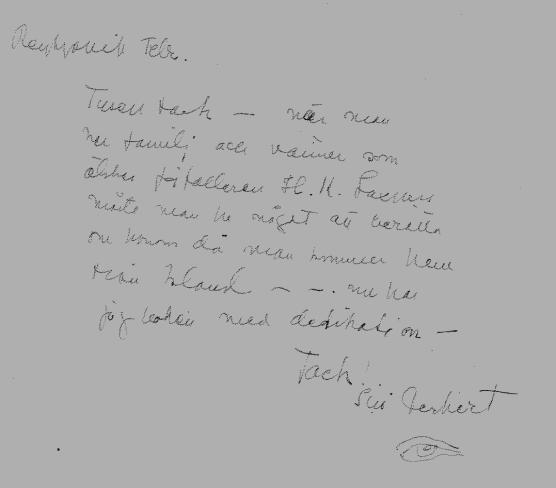 Reykjavik Febr.
Tusen tack — när man
har familj och vänner som
älskar författaren H. K. Laxness
måste man ha något att berätta
om honom då man kommer hem
från Island — — . nu har
jag boken med dedikation —
Tack!
Siri Derkert